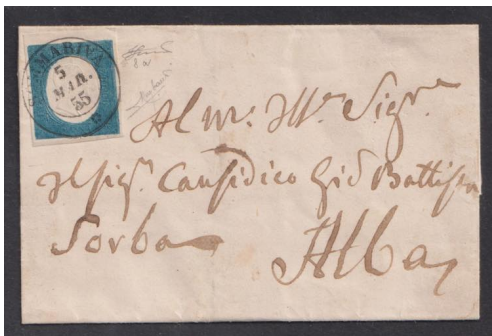 SOMMARIVA
5
MAR.
55
Al m:to Ill.re Sig.re
Il Sig.r Causidico Gio Battista
Sorba
Alba